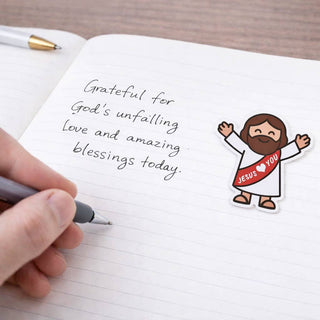 Grateful for
God's unfailling
love and amazing
blessings today.
JESUS ❤ YOU